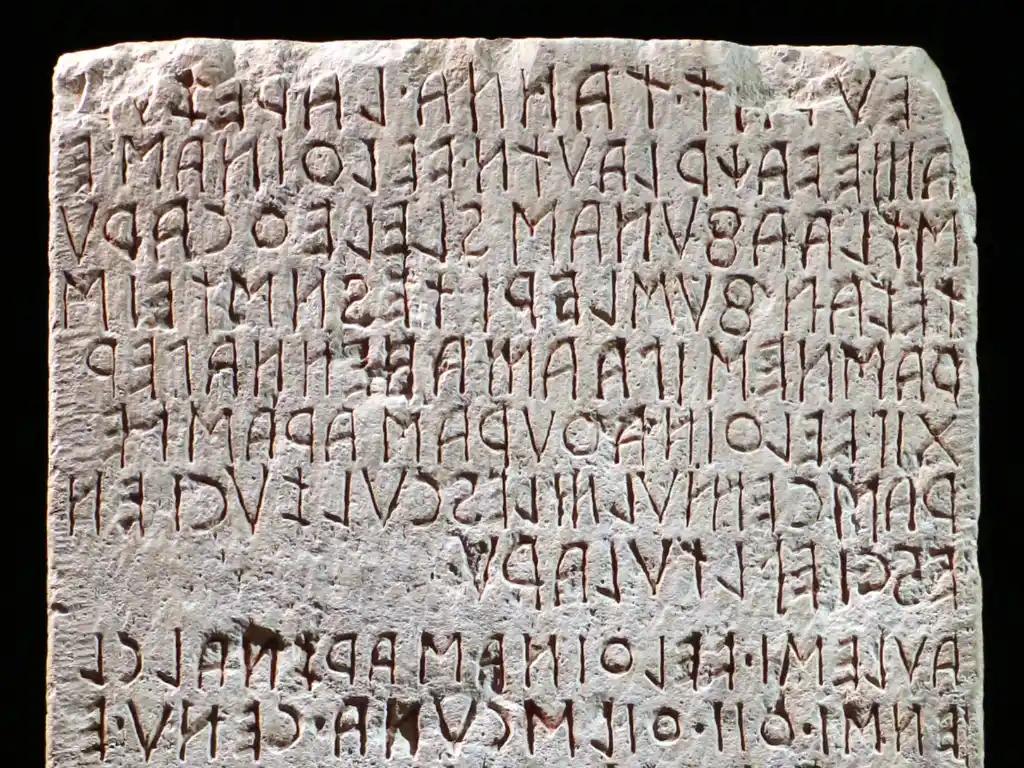 𐌕𐌀𐌍𐌍𐌀·𐌋𐌀𐌓𐌄𐌆𐌖
𐌀𐌌𐌄𐌅𐌀𐌙𐌓 𐌋𐌀𐌖𐌕𐌍·𐌅𐌄𐌋𐌈𐌉𐌍𐌀𐌑 𐌄
𐌑𐌕𐌋𐌀 𐌀𐌚𐌖𐌍𐌀𐌑 𐌔𐌋𐌄𐌋𐌄𐌈 𐌂𐌀𐌓𐌖
𐌕𐌄𐌆𐌀𐌍 𐌚𐌖𐌑𐌋𐌄𐌓𐌉 𐌕𐌄𐌔𐌍𐌑 𐌕𐌄𐌉𐌑
𐌓𐌀𐌑𐌍𐌄𐌑 𐌉𐌐𐌀 𐌀𐌌𐌀 𐌇𐌄𐌍 𐌍𐌀𐌐𐌄𐌓
𐌗𐌉𐌉 𐌅𐌄𐌋𐌈𐌉𐌍𐌀𐌈𐌖𐌓𐌀𐌑 𐌀𐌓𐌀𐌑 𐌐𐌄
𐌓𐌀𐌑𐌂𐌄𐌌𐌖𐌋𐌌𐌋𐌄𐌔𐌂𐌖𐌋 𐌆𐌖𐌂𐌉 𐌄𐌍
𐌄𐌔𐌂𐌉 𐌄𐌐𐌋 𐌕𐌖𐌋𐌀𐌓𐌖
𐌀𐌖𐌋𐌄𐌑𐌉·𐌅𐌄𐌋𐌈𐌉𐌍𐌀𐌑 𐌀𐌓𐌆𐌍𐌀𐌋 𐌂𐌋
𐌄𐌍𐌑𐌉·𐌈𐌉𐌉·𐌈𐌉𐌋 𐌑𐌂𐌖𐌍𐌀·𐌂𐌄𐌍𐌖·𐌄